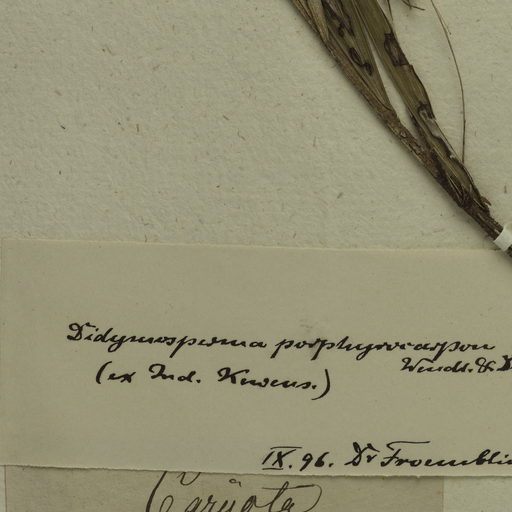 Didymosperma porphyrocarpon
Wendl. & D
(ex Ind. Kewens.)
IX. 96. Dr Froemblin
Caryota